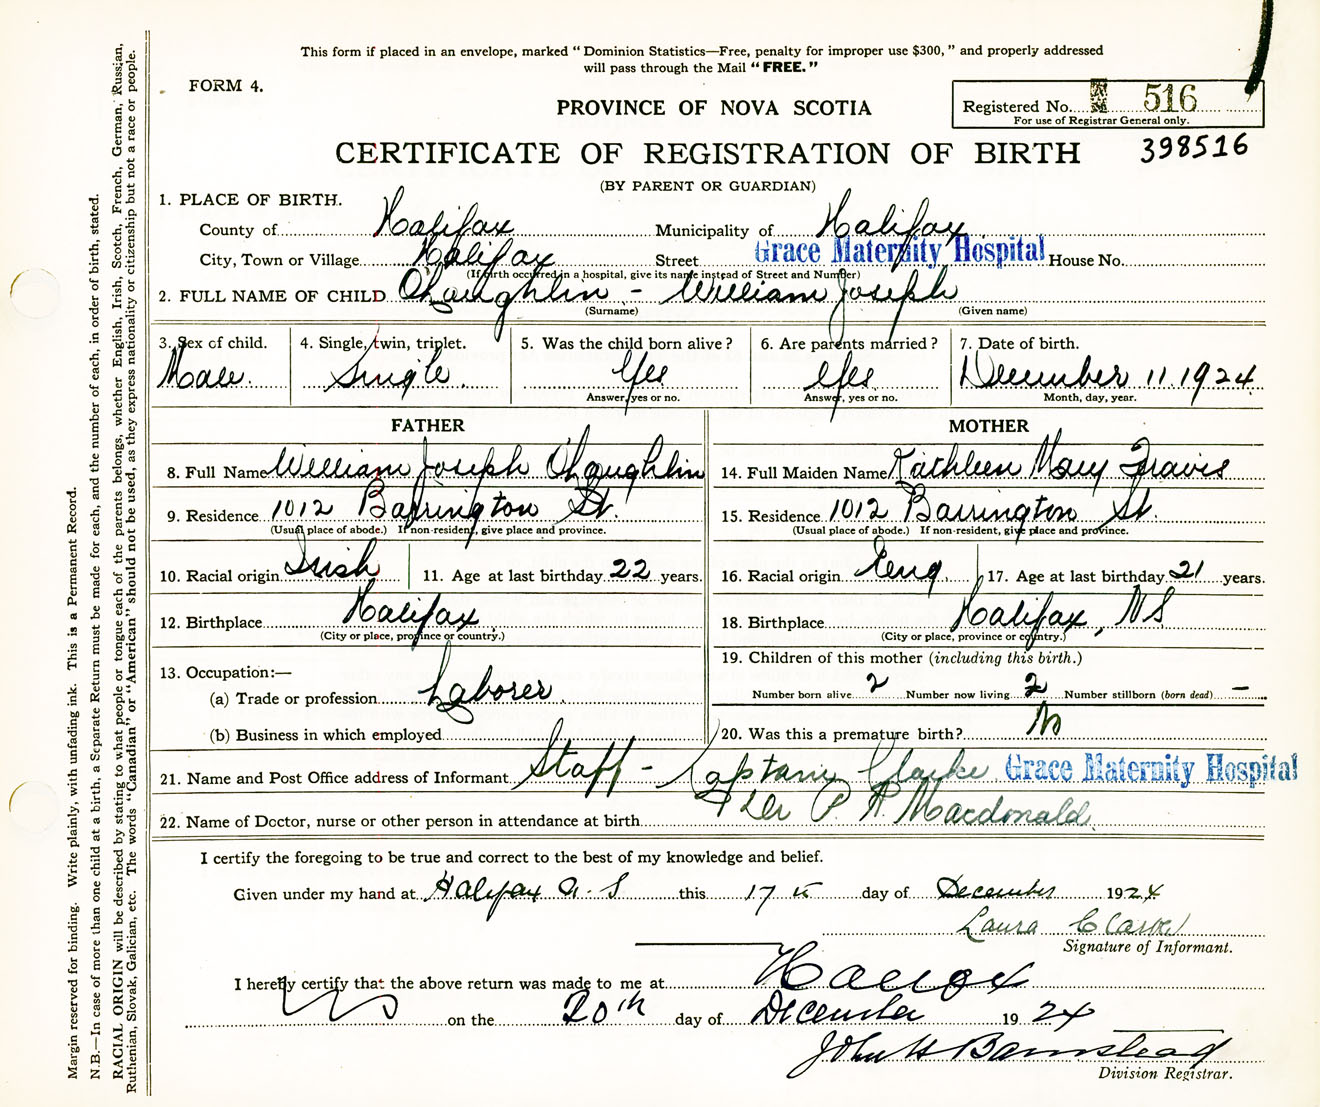 This form if placed in an envelope, marked "Dominion Statistics—Free, penalty for improper use $300," and properly addressed
will pass through the Mail "FREE."
FORM 4.
PROVINCE OF NOVA SCOTIA
Registered No. 516
For use of Registrar General only.
CERTIFICATE OF REGISTRATION OF BIRTH 398516
(BY PARENT OR GUARDIAN)
1. PLACE OF BIRTH.
County of Halifax Municipality of Halifax
City, Town or Village Halifax Street Grace Maternity Hospital House No.
(If birth occurred in a hospital, give its name instead of Street and Number)
2. FULL NAME OF CHILD O'Laughlin - William Joseph
(Surname) (Given name)
3. Sex of child. 4. Single, twin, triplet. 5. Was the child born alive? 6. Are parents married? 7. Date of birth.
Male. Single. Yes Yes December 11. 1924.
Answer, yes or no. Answer, yes or no. Month, day, year.
FATHER MOTHER
8. Full Name William Joseph O'Laughlin 14. Full Maiden Name Kathleen Mary Travis
9. Residence 1012 Barrington St. 15. Residence 1012 Barrington St.
(Usual place of abode.) If non-resident, give place and province. (Usual place of abode.) If non-resident, give place and province.
10. Racial origin Irish 11. Age at last birthday 22 years. 16. Racial origin Eng. 17. Age at last birthday 21 years.
12. Birthplace Halifax 18. Birthplace Halifax, NS
(City or place, province or country.) (City or place, province or country.)
13. Occupation:— 19. Children of this mother (including this birth.)
(a) Trade or profession Laborer. Number born alive 2 Number now living 2 Number stillborn (born dead) —
(b) Business in which employed 20. Was this a premature birth? No
21. Name and Post Office address of Informant Staff - Captain Clarke Grace Maternity Hospital
22. Name of Doctor, nurse or other person in attendance at birth Dr P. A. Macdonald
I certify the foregoing to be true and correct to the best of my knowledge and belief.
Given under my hand at Halifax N.S this 17th day of December 1924
Laura Clarke
Signature of Informant.
I hereby certify that the above return was made to me at Halifax
NS on the 20th day of December 1924
John H Barnstead
Division Registrar.
Margin reserved for binding. Write plainly, with unfading ink. This is a Permanent Record.
N.B.—In case of more than one child at a birth, a Separate Return must be made for each, and the number of each, in order of birth, stated.
RACIAL ORIGIN will be described by stating to what people or tongue each of the parents belongs, whether English, Irish, Scotch, French, German, Russian,
Ruthenian, Slovak, Galician, etc. The words "Canadian" or "American" should not be used, as they express nationality or citizenship but not a race or people.